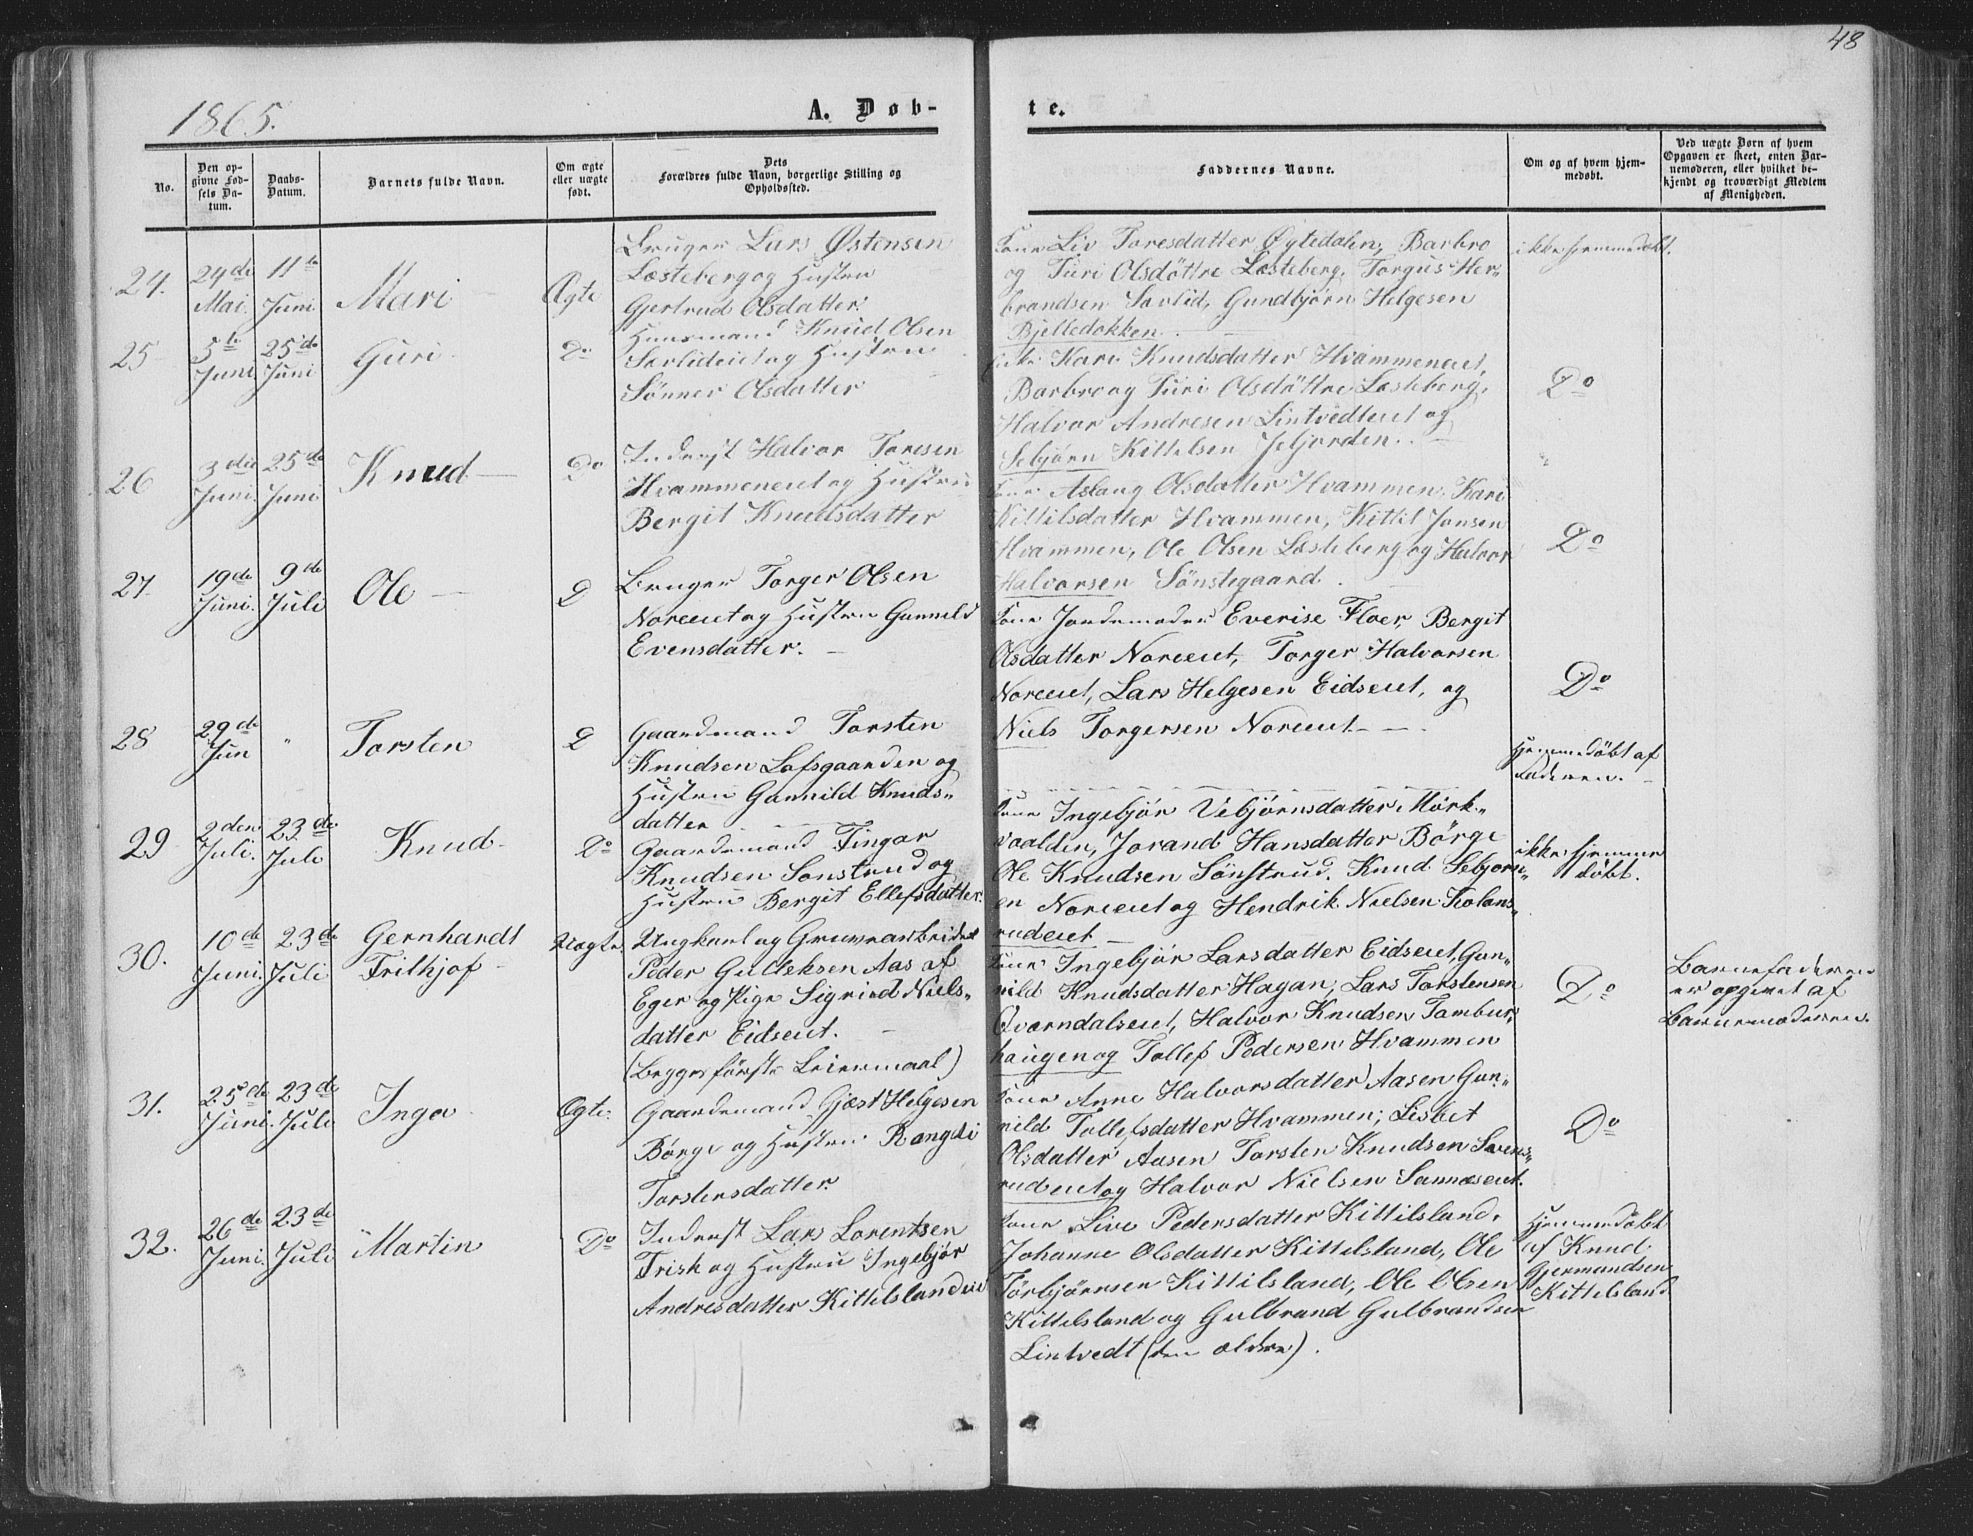 48
1865.
A. Døb-
te.
No.
Den op-
givne Fød-
sels Da-
tum.
Daabs-
Datum.
Barnets fulde Navn.
Om ægte
eller uægte
født.
Dets
Forældres fulde Navn, borgerlige Stilling og
Opholdssted.
Faddernes Navne.
Om og af hvem hjem-
medøbt.
Ved uægte Børn af hvem
Opgaven er skeet, enten Bar-
nemoderen, eller hvilket be-
kjendt og troværdigt Medlem
af Menigheden.
24.
24de
Mai.
11te
Juni
Mari
Ægte
Bruger Lars Østensen
Læsteberg og Hustru
Gjertrud Olsdatter.
Kone Liv Toresdatter Øytedalen, Barbro
og Turi Olsdøttre Læsteberg. Torgus Her-
brandsen Savlid, Gundbjørn Helgesen
Bjelledokken.
ikke hjemmedøbt.
25
5te
Juni
25de
Juni
Guri
Do
Huusmand Knud Olsen
Savlideiet og Hustru
Sønner Olsdatter
Kari Knudsdatter Hvammeneiet,
Barbro og Turi Olsdøttre Læsteberg,
Halvor Andresen Lintvedteiet og
Sebjørn Kittelsen Jeljorden.
Do
26
3die
Juni.
25de
Juni
Knud
Do
Inderst Halvor Toresen
Hvammeneiet og Hustru
Bergit Knudsdatter
Kone Aslaug Olsdatter Hvammen, Kari
Kittilsdatter Hvammen, Kittil Jonsen
Hvammen, Ole Olsen Læsteberg og Halvor
Halvorsen Sønstegaard.
Do
27.
19de
Juni.
9de
Juli
Ole
D
Bruger Torger Olsen
Noreeiet og Hustru Gunnild
Evensdatter.
Kone Jordemoder Everise Floer, Bergit
Olsdatter Noreeiet, Torger Halvorsen
Noreeiet, Lars Helgesen Eidseiet, og
Niels Torgersen Noreeiet
Do
28
29de
Jun
"
Torsten
D
Gaardmand Torsten
Knudsen Lofsgaarden og
Hustru Gunnild Knuds-
datter
Hjemmedøbt af
Faderen.
29
2den
Juli.
23de
Juli
Knud
Do
Gaardmand Fingar
Knudsen Sønstrud og
Hustru Bergit Ellefsdatter.
Kone Ingebjør Vebjørnsdatter Mørk-
voalden, Jorand Hansdatter Børge
Ole Knudsen Sønstrud, Knud Sebjørns-
en Noreeiet og Hendrik Nielsen Kolans-
rudeiet
ikke hjemme
døbt.
30.
10de
Juni.
23de
Juli
Gernhardt
Frithjof
Uægte.
Ungkarl og Gruvearbeider
Peder Gulleksen Aas af
Eger og Pige Sigrid Niels-
datter Eidseiet.
(Begges første Leiermaal)
Kone Ingebjør Larsdatter Eidseiet, Gun-
nild Knudsdatter Hagan, Lars Torstensen
Qværndalseiet, Halvor Knudsen Tambur-
haugen og Tollef Pedersen Hvammen
Do
Barnefaderen
er opgivet af
Barnemoderen.
31.
25de
Juni.
23de
Juli
Inga
Ægte.
Gaardmand Gjæst Helgesen
Børge og Hustru Rangdi
Torstensdatter.
Kone Anne Halvorsdatter Aasen Gun-
nild Tollefsdatter Hvammen; Lisbet
Olsdatter Aasen Torsten Knudsen Svens-
rudeiet og Halvor Nielsen Sannæseiet.
Do
32.
26de
Juni.
23de
Juli
Martin
Do
Inderst Lars Lorentsen
Frisk og Hustru Ingebjør
Andresdatter Kittilslandeie
Kone Live Pedersdatter Kittilsland.
Johanne Olsdatter Kittelsland, Ole
Torbjørnsen Kittilsland, Ole Olsen
Kittelsland og Gulbrand Gulbrandsen
Lintvedt (den ældre).
Hjemmedøbt
af Knud
Gjermundsen
Kittelsland